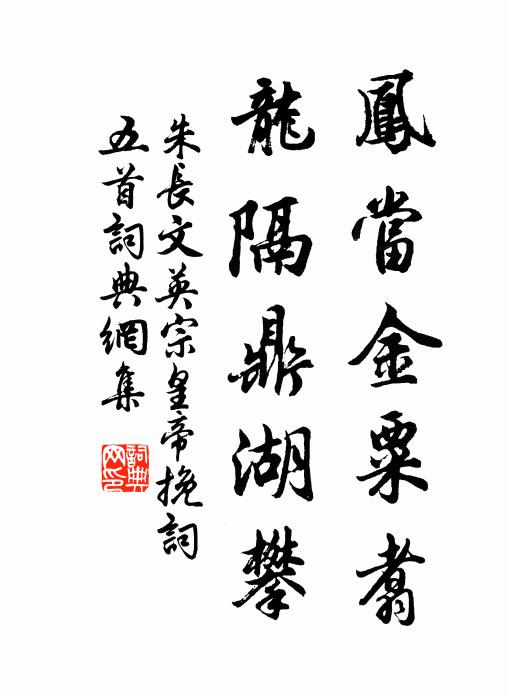 鳳當金粟翥
龍隔鼎湖攀
朱長文英宗皇帝挽詞
五首詞典網集
詞典網印